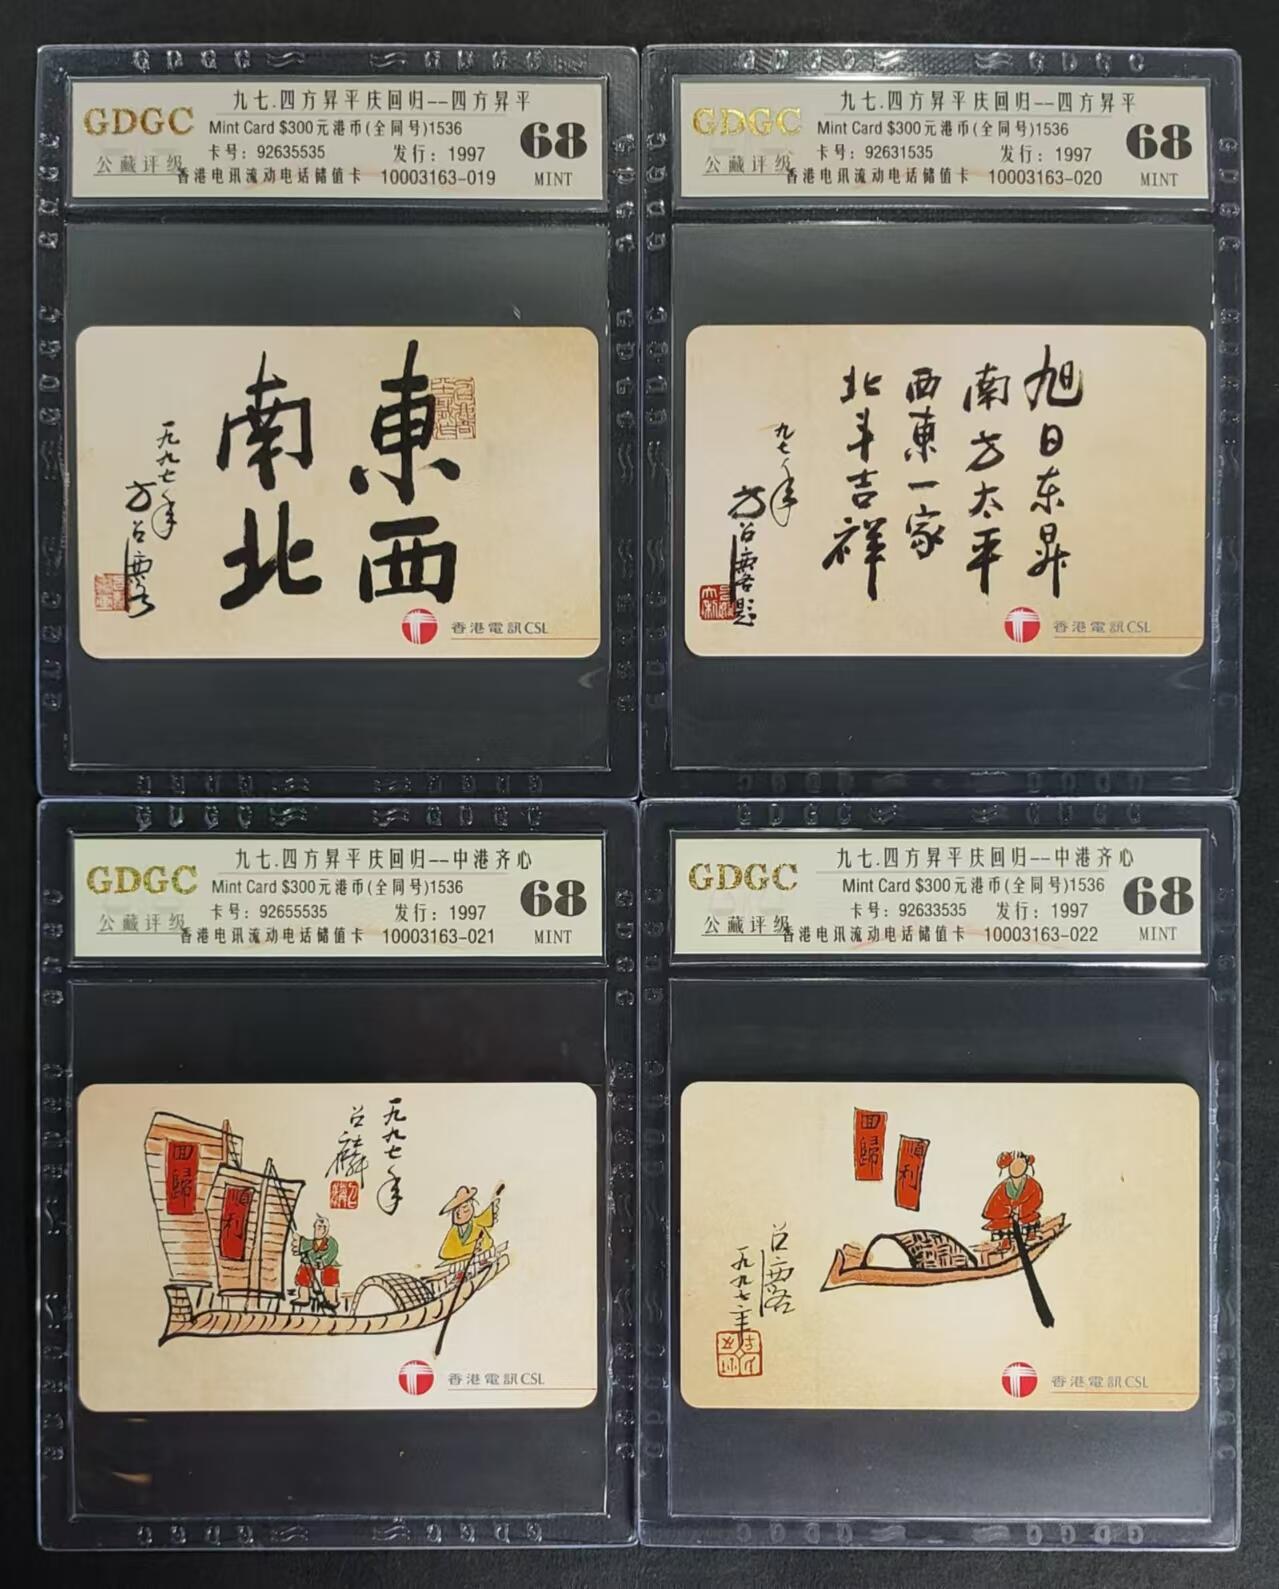 九七.四方昇平庆回归--四方昇平
GDGC
Mint Card $300元港币(全同号)1536
68
卡号：92635535 发行：1997
公藏评级
香港电讯流动电话储值卡 10003163-019
MINT
東西
南北
一九九七年
方召麐
香港電訊CSL
九七.四方昇平庆回归--四方昇平
GDGC
Mint Card $300元港币(全同号)1536
68
卡号：92631535 发行：1997
公藏评级
香港电讯流动电话储值卡 10003163-020
MINT
旭日东昇
南方太平
西東一家
北斗吉祥
九七年
方召麐題
香港電訊CSL
九七.四方昇平庆回归--中港齐心
GDGC
Mint Card $300元港币(全同号)1536
68
卡号：92655535 发行：1997
公藏评级
香港电讯流动电话储值卡 10003163-021
MINT
一九九七年
召麐
回歸
順利
香港電訊CSL
九七.四方昇平庆回归--中港齐心
GDGC
Mint Card $300元港币(全同号)1536
68
卡号：92633535 发行：1997
公藏评级
香港电讯流动电话储值卡 10003163-022
MINT
回歸
順利
召麐
一九九七年
香港電訊CSL